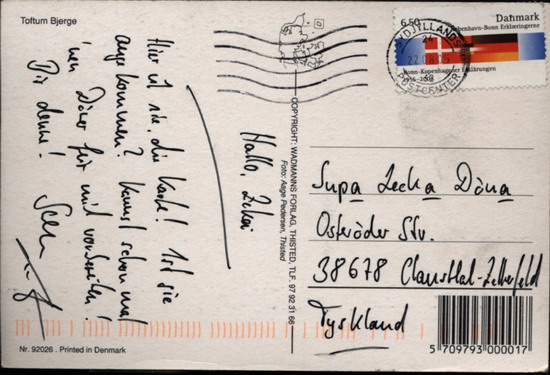 Toftum Bjerge
Hallo, Zekai
Hier ist sie, die Karte! Ist sie
angekommen? Kannst schon mal
nen Döner für mich vorbereiten!
Bis denne!
6.50 Danmark
København-Bonn Erklæringerne
Bonn-Kopenhagener Erklärungen
SYDJYLLANDS
POSTCENTER
COPYRIGHT: WADMANNS FORLAG, THISTED, TLF. 97 92 31 66
Foto: Aage Pedersen, Thisted
Supa Lecka Döna
Osteröder Str.
38678 Clausthal-Zellerfeld
Tyskland
Nr. 92026 . Printed in Denmark
5 709793 000017